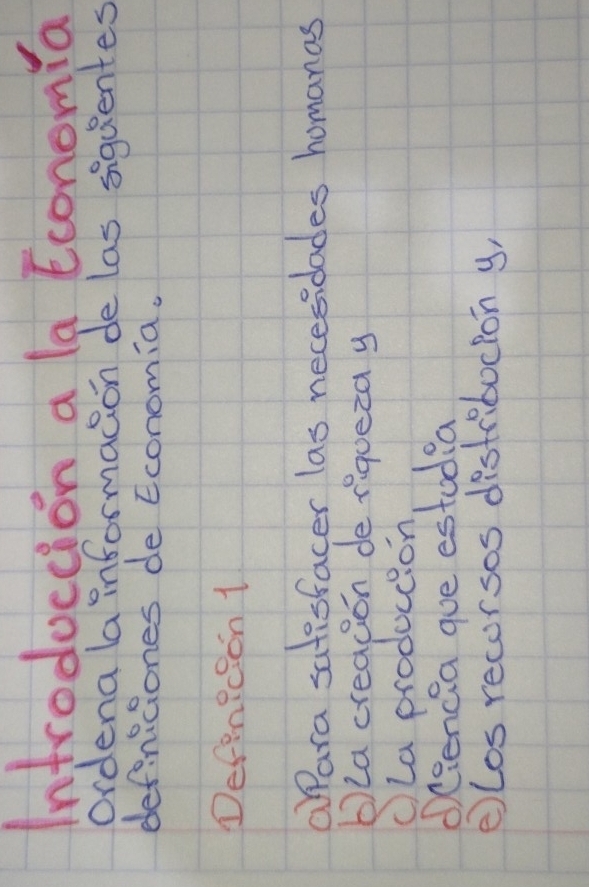 Introducción a la Economía
Ordena la información de las siguientes
definiciones de Economía.
Definición 1
a) Para satisfacer las necesidades humanas
b) La creación de riqueza y
c) La producción
d) Ciencia que estudia
e) Los recursos distribución y,